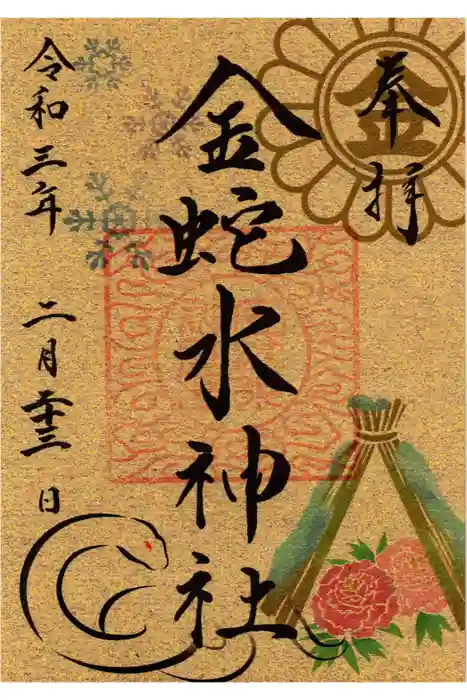 奉拝
金
金蛇水神社
令和三年 二月二十三日